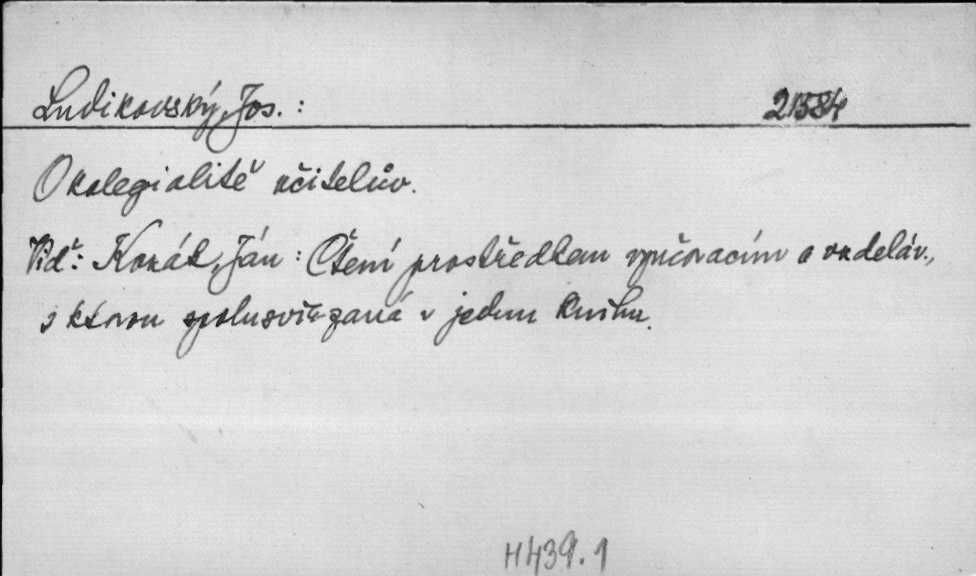 Ludikovský, Jos.: 21584
O kolegialitě učitelův.
Viď: Konát, Ján: Čtení prostředkem vyučovacím a vzděláv.,
s ktorou spolusviazaná v jednu knihu.
H 439.1